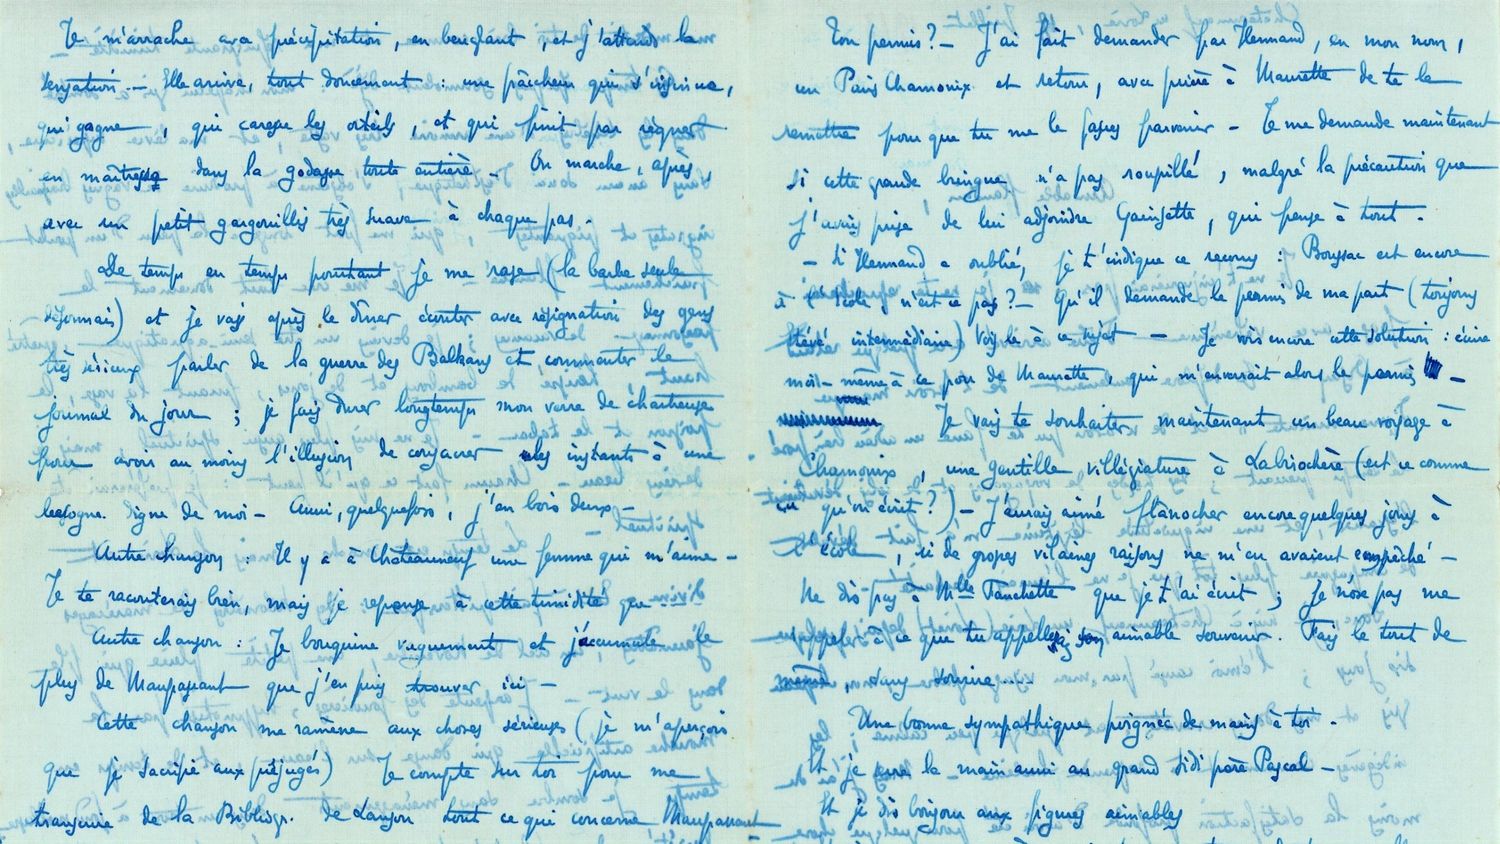 Je m'arrache avec précipitation, en beuglant, et j'attends la
sensation. — Elle arrive, tout doucement : une fraîcheur qui s'insinue,
qui gagne, qui caresse les orteils, et qui finit par régner
en maîtresse dans la godasse toute entière — On marche, après,
avec un petit gargouillis très suave à chaque pas.
De temps en temps pourtant je me rase (la barbe seule
désormais) et je vais après le dîner écouter avec résignation des gens
très sérieux parler de la guerre des Balkans et commenter le
journal du jour ; je fais durer longtemps mon verre de chartreuse
pour avoir au moins l'illusion de consacrer des instants à une
besogne digne de moi — Aussi, quelquefois, j'en bois deux —
Autre chanson : Il y a à Châteauneuf une femme qui m'aime —
Je te raconterais bien, mais je repense à cette timidité que —
Autre chanson : Je bouquine vaguement et j'accumule le
plus de Maupassant que j'en puis trouver ici —
Cette chanson me ramène aux choses sérieuses (je m'aperçois
que je sacrifie aux préjugés) Je compte sur toi pour me
transcrire de la Bibliogr. de Lanson tout ce qui concerne Maupassant
Ton permis ? — J'ai fait demander par Hennand, en mon nom,
un Paris Chamonix et retour, avec prière à Maurette de te le
remettre pour que tu me le fasses parvenir — Je me demande maintenant
si cette grande bringue n'a pas roupillé, malgré la précaution que
j'avais prise de lui adjoindre Gainsette, qui pense à tout.
— Si Hennand a oublié, je t'indique ce recours : Boussac est encore
à l'école n'est ce pas ? — Qu'il demande le permis de ma part (toujours
intermédiaire) Vois le à ce sujet — Je vois encore cette solution : écrire
moi-même à ce pou de Maurette, qui m'enverrait alors le permis —
Je vais te souhaiter maintenant un beau voyage à
Chamonix, une gentille villégiature à Labriochère (est ce comme
ça qu'on écrit ?) — J'aurais aimé flânocher encore quelques jours à
l'école, si de grosses vilaines raisons ne m'en avaient empêché —
Ne dis pas à Mlle Fanchette que je t'ai écrit ; je n'ose pas me
rappeler à ce que tu appelles son aimable souvenir. Fais le tout de
même, sans sourire....
Une bonne sympathique poignée de mains à toi.
Et je serre la main aussi au grand sidi père Pascal —
Et je dis bonjour aux figures aimables